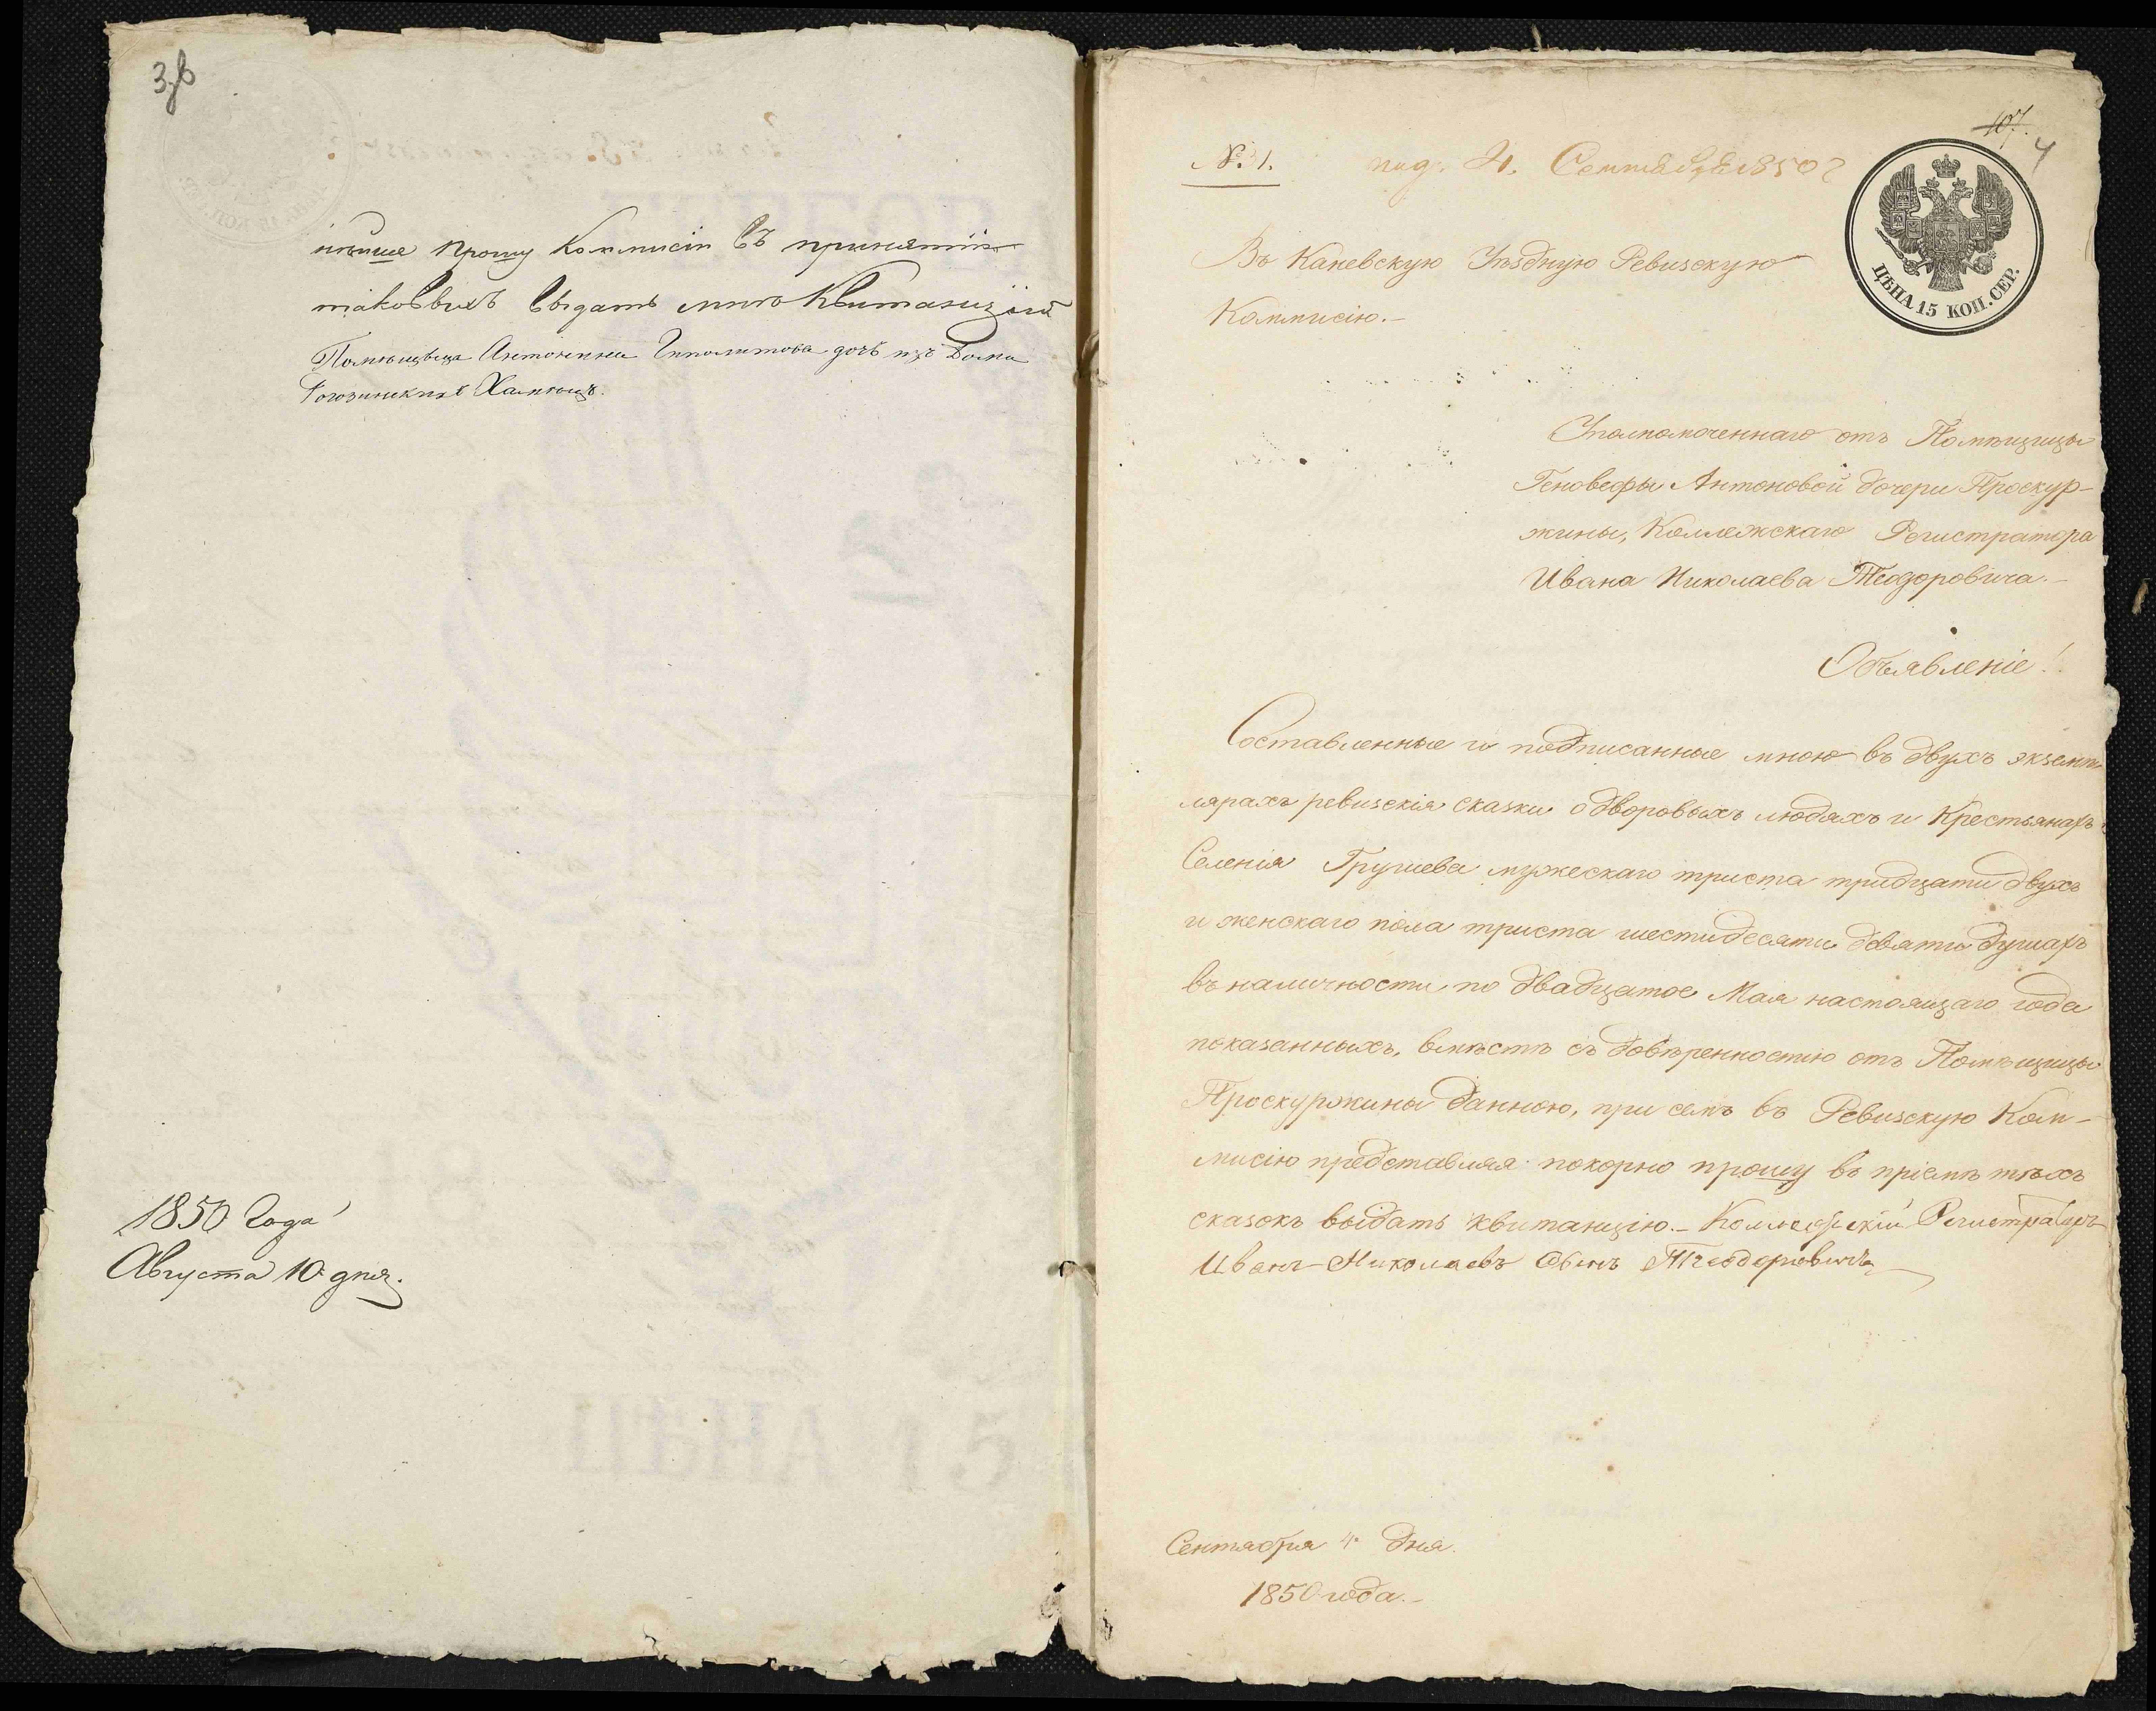 3об
нѣйше прошу Коммисіи въ принятіи
таковыхъ выдать мнѣ Квитанцію
Помѣщица Антонина Ипполитова дочь изъ Дома
Рогозинскихъ
1850 Года
Августа 10 дня.
107.
4
№. 1.
под. 4. Сентября 1850 г
ЦѢНА 15 КОП. СЕР.
Въ Каневскую Уѣздную Ревизскую
Коммисію.-
Уполномоченнаго отъ Помѣщицы
Геновефы Антоновой дочери Проскур-
жины, Коллежскаго Регистратора
Ивана Николаева Теодоровича.-
Объявленіе!
Составленные и подписанные мною въ двухъ экземп-
лярахъ ревизскія сказки о дворовыхъ людяхъ и Крестьянахъ
Селенія Грушева мужескаго триста тридцати двухъ
и женскаго пола триста шестидесяти девяти душахъ
въ наличности по двадцатое Мая настоящаго года
показанныхъ, вмѣстѣ съ довѣренностію отъ Помѣщицы
Проскуржины данною, при семъ въ Ревизскую Ком-
мисію представляя покорно прошу въ пріемѣ тѣхъ
сказокъ выдать квитанцію.- Коллежскій Регистраторъ
Иванъ Николаевъ Сынъ Теодоровичъ
Сентября 4 дня.
1850 года.-